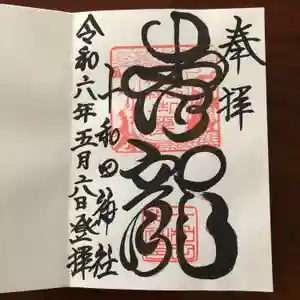 奉拝
青龍
十和田神社
令和六年五月六日登拝